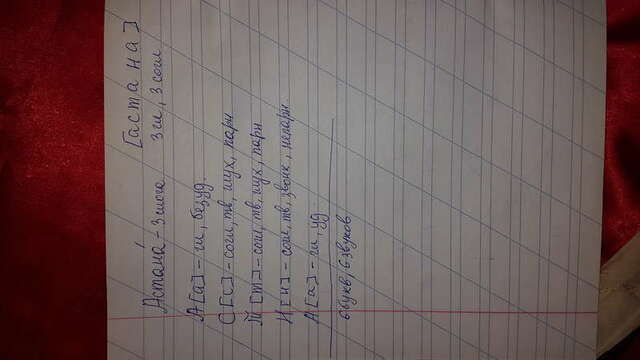 [астана]
Астана́ - 3 слога 3 гл, 3 согл
А [а] - гл, безуд.
С [с] - согл, тв, глух, парн
Т [т] - согл, тв, глух, парн
Н [н] - согл, тв, звонк, непарн
А [а] - гл, уд.
6 букв, 6 звуков